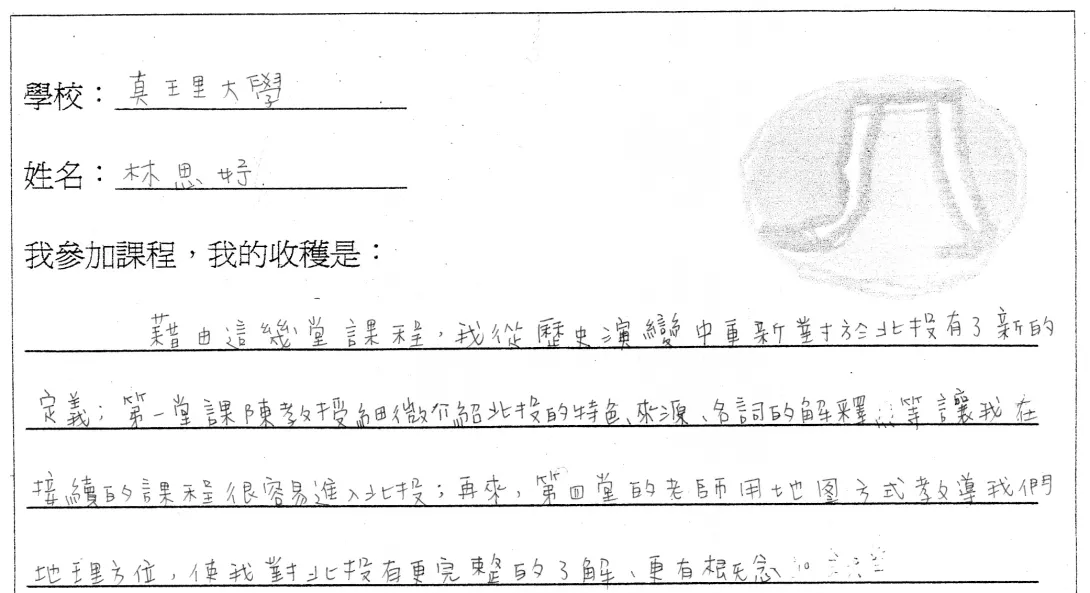 學校：真理大學
姓名：林思妤
我參加課程，我的收穫是：
藉由這幾堂課程，我從歷史演變中重新對於北投有了新的
定義；第一堂課陳教授細微介紹北投的特色、來源、名詞的解釋…等讓我在
接續的課程很容易進入北投；再來，第四堂的老師用地圖方式教導我們
地理方位，使我對北投有更完整的了解、更有概念